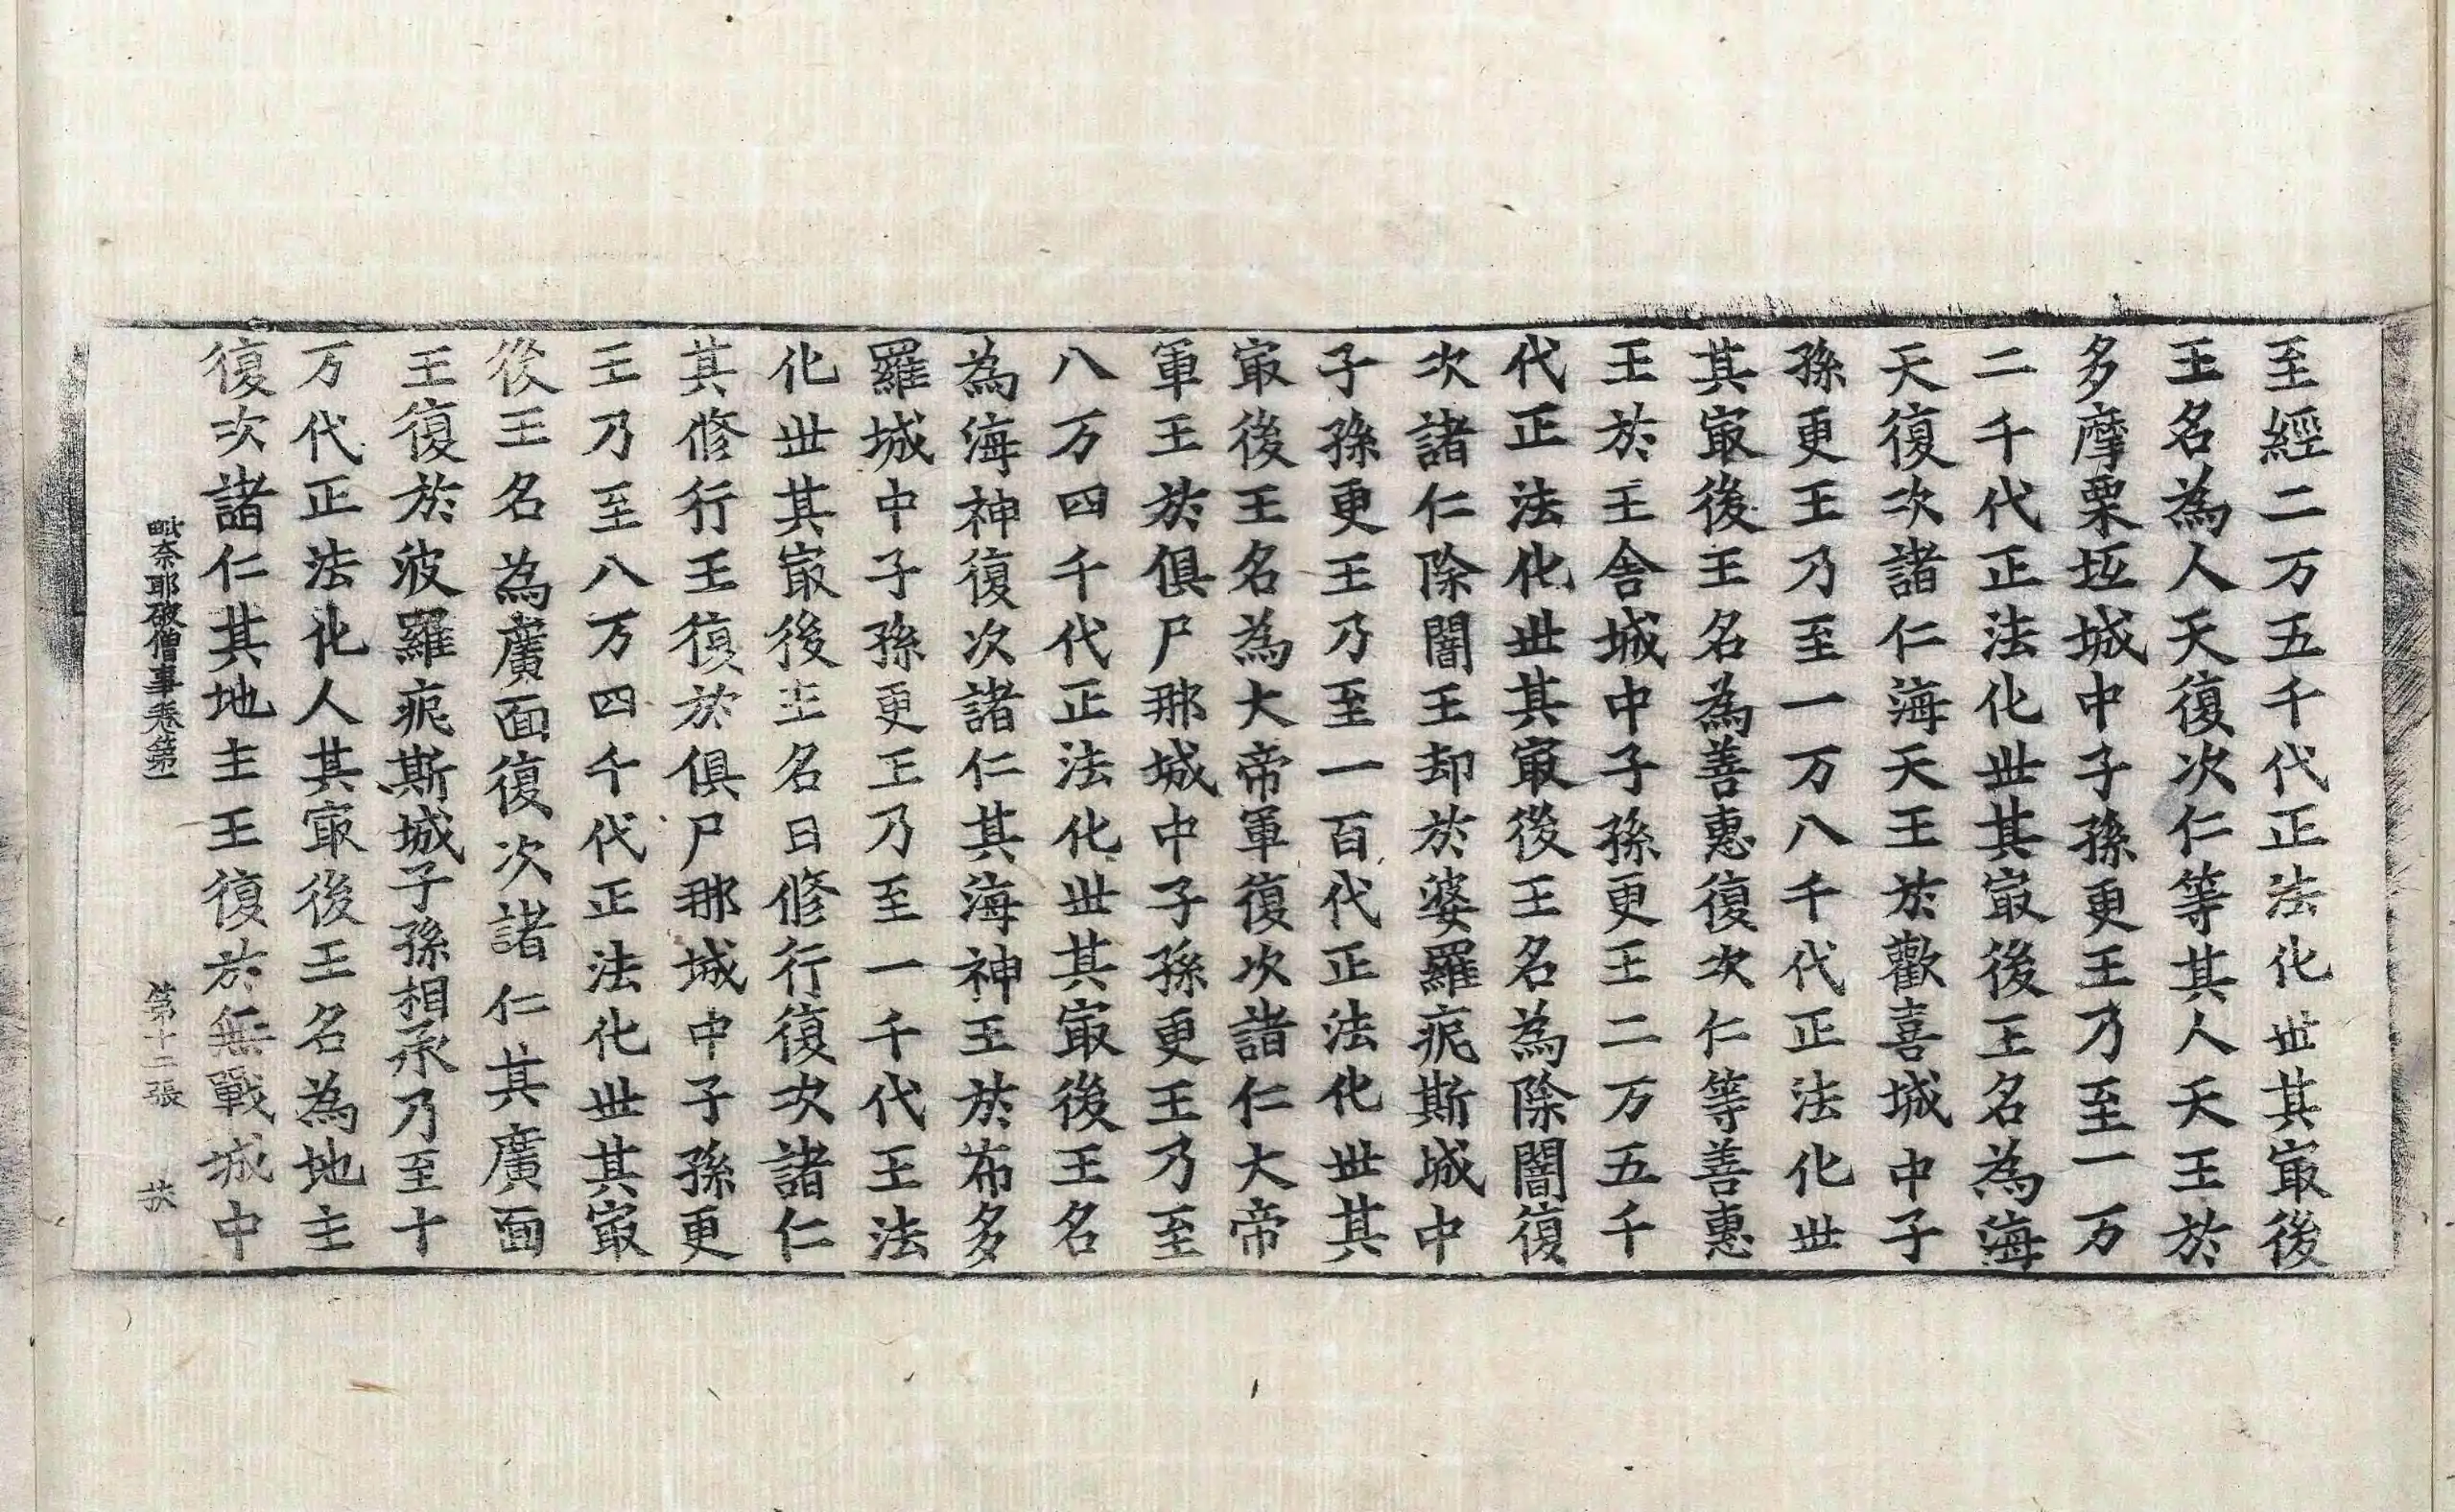 至經二万五千代正法化世其㝡後
王名為人天復次仁等其人天王於
多摩栗坻城中子孫更王乃至一万
二千代正法化世其㝡後王名為海
天復次諸仁海天王於歡喜城中子
孫更王乃至一万八千代正法化世
其㝡後王名為善惠復次仁等善惠
王於王舍城中子孫更王二万五千
代正法化世其㝡後王名為除闇復
次諸仁除闇王却於婆羅痆斯城中
子孫更王乃至一百代正法化世其
㝡後王名為大帝軍復次諸仁大帝
軍王於俱尸那城中子孫更王乃至
八万四千代正法化世其㝡後王名
為海神復次諸仁其海神王於布多
羅城中子孫更王乃至一千代王法
化世其㝡後王名曰修行復次諸仁
其修行王復於俱尸那城中子孫更
王乃至八万四千代正法化世其㝡
後王名為廣面復次諸仁其廣面
王復於波羅痆斯城子孫相承乃至十
万代正法化人其㝡後王名為地主
復次諸仁其地主王復於無戰城中
毗奈耶破僧事卷第一 第十二張